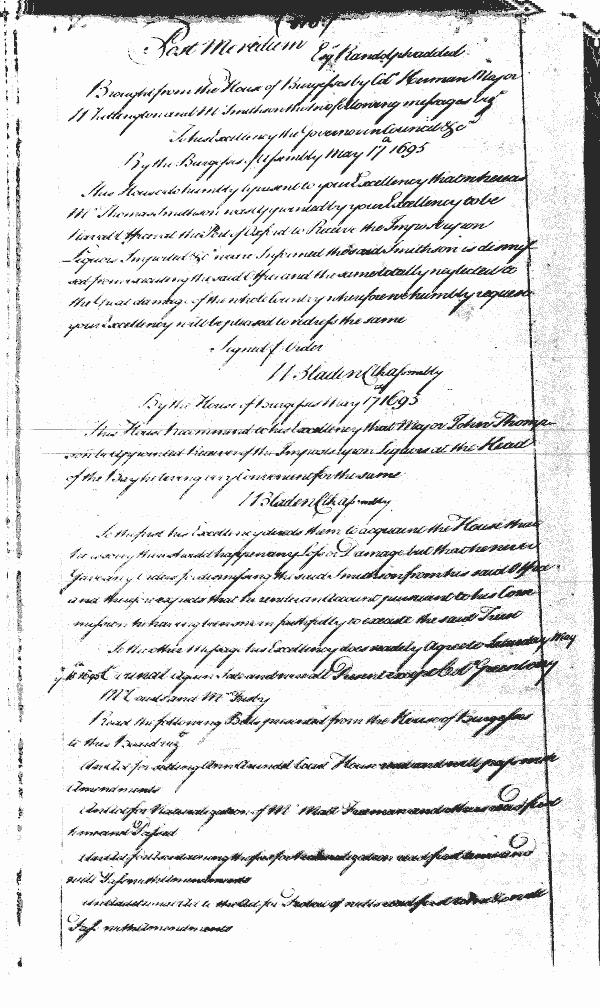 Post Meridiem Esqr Randolph added
Brought from the House of Burgesses by Col Herman Major
Whittington and Mr Smithson the two following messages vizt
To his Excellency the Governour in Council &c
By the Burgesses Assembly May 17th 1695
This House do humbly represent to your Excellency that whereas
Mr Thomas Smithson was by your Excellency to be
Naval Officer at the Port of Oxford to Receive the Impost upon
Liquors Imported &c were Informed the said Smithson is dismis
sed from executing the said Office and the same totally neglected to
the Great damage of the whole Country wherefore humbly request
your Excellency will be pleased to redress the same
Signed p Order
W Bladen Clk Assembly
By the House of Burgesses May 17th 1695
This House recommend to his Excellency that Major John Thomp
son be appointed Receiver of the Imposts upon Liquors at the Head
of the Bay he living very Convenient for the same
W Bladen Clk Assembly
To the first his Excellency directs them to acquaint the House that
he is sorry there should happen any Loss or Damage but that he never
Gave any Orders for dismissing the said Smithson from his said Office
and therefore expects that he render an Account pursuant to his Com
mission he having been sworn faithfully to execute the said Trust
To the other Message his Excellency does readily Agree to Saturday May
18th 1695 Council again Sate and were all Present except Col Greenberry
Mr and Mr Frisby
Read the following Bills presented from the House of Burgesses
to this Board vizt
An Act for settling Ann Arundel Court House read and will pass with
Amendments
An Act for Naturalization of Mr Matt Freeman and others read first
time and Passed
An Act for the fees for Naturalization read first time and
will Pass with Amendments
An Act for read first and will
Pass with Amendments